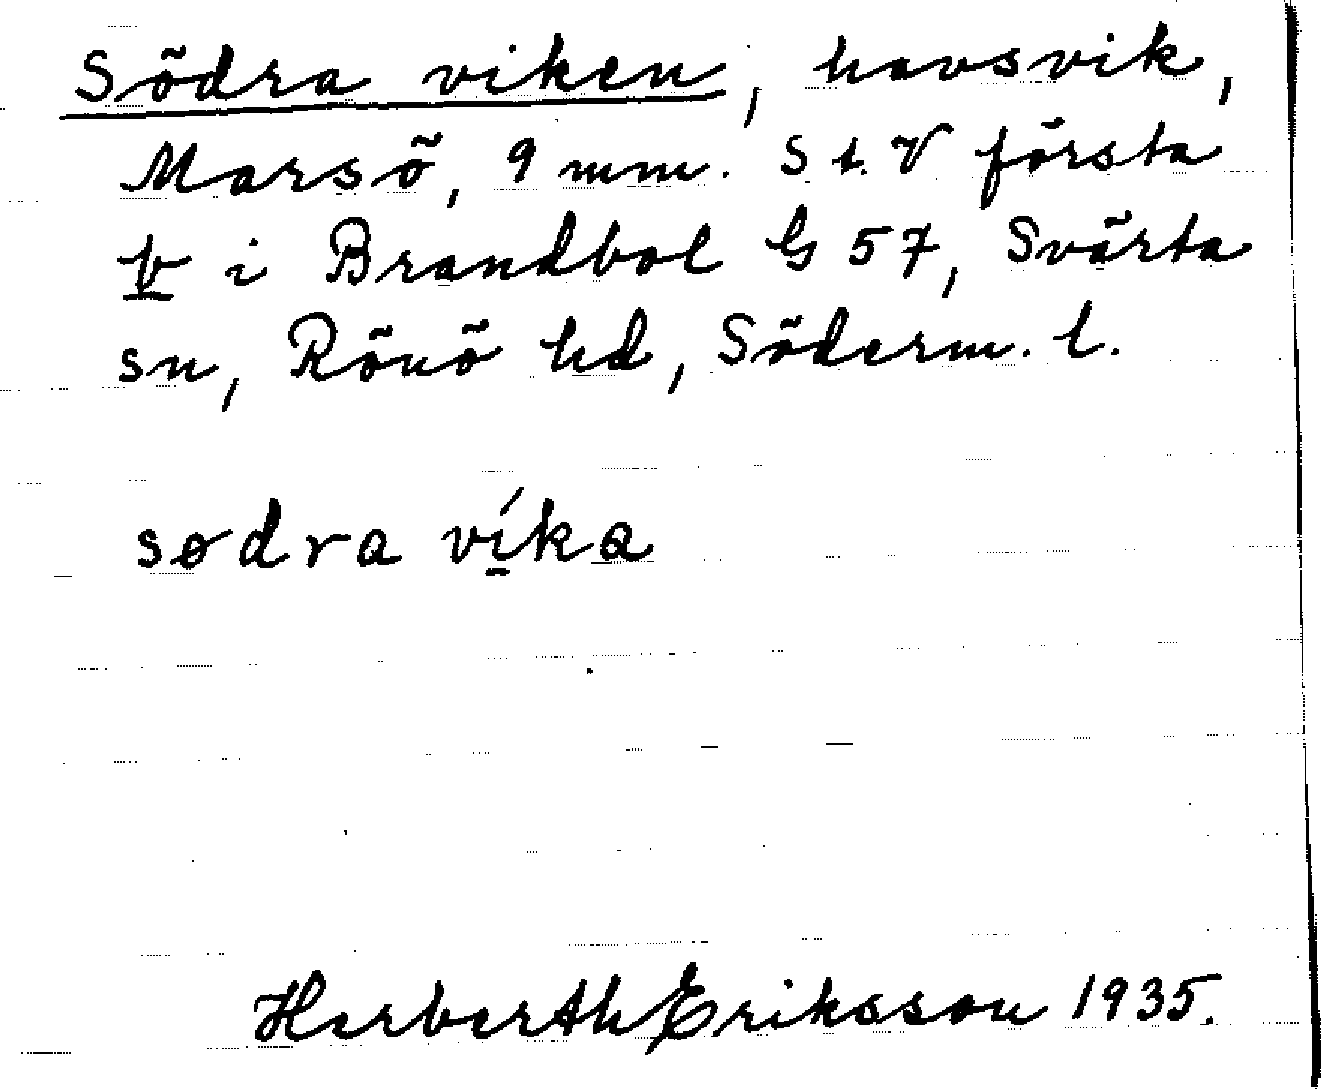 Södra viken, havsvik,
Marsö, 9 mm. S t. V första
b i Brandbol G 57, Svärta
sn, Rönö hd, Söderm. l.
sødra víka
Herberth Eriksson 1935.